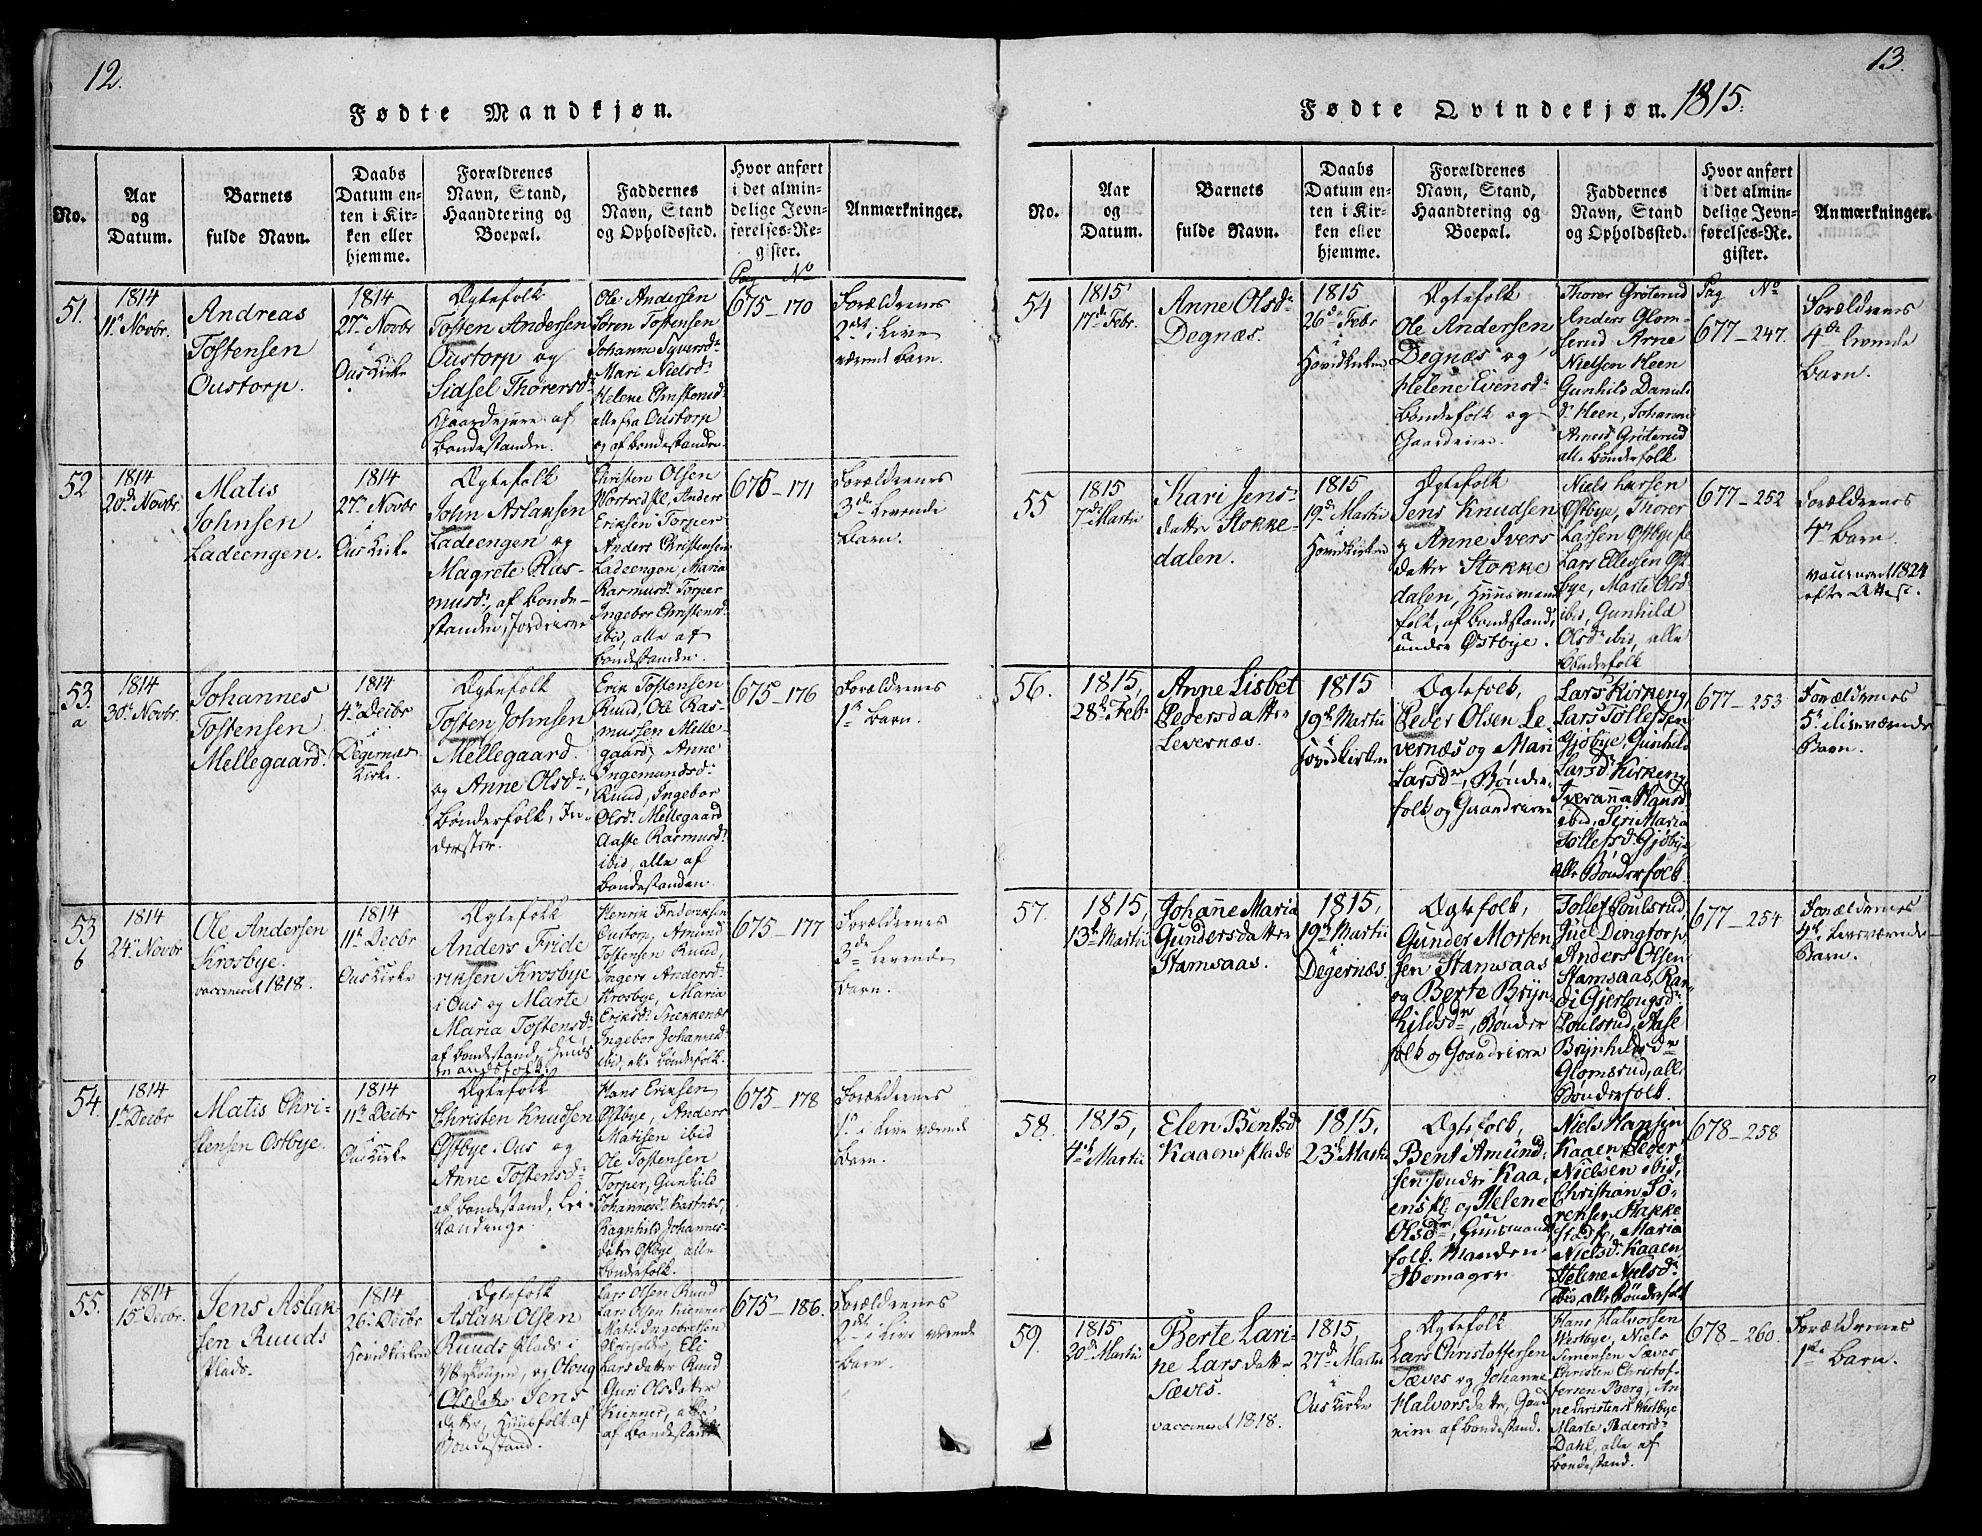 12.
Fødte Mandkjøn.
No.
Aar
og
Datum.
Barnets
fulde Navn.
Daabs
Datum en-
ten i Kir-
ken eller
hjemme.
Forældrenes
Navn, Stand,
Haandtering og
Boepæl.
Faddernes
Navn, Stand
og Opholdssted.
Hvor anført
i det almin-
delige Jevn-
førelses-Re-
gister.
Anmærkninger.
Pag No
51.
1814
11te Novbr.
Andreas
Tostensen
Oustorp.
1814
27de Novbr
i
Ous Kirke
Ægtefolk
Tosten Andersen
Oustorp og
Sidsel Thorersdr
Gaardejere af
bondestanden.
Ole Andersen
Søren Tostensen
Johanne Syversdr
Mari Nielsdr
Helene Christensd
alle fra Oustorp
og af bondestanden
675-170
Forældrenes
2det i Live
værende barn.
52
1814
20de Novbr.
Matis
Johnsen
Ladeengen.
1814
27de Novbr
i
Ous Kirke
Ægtefolk
John Aslaksen
Ladeengen og
Magrete Ras-
musdr, af bonde-
standen, Jordeiere
Christen Olsen
Anders
Eriksen Torper
Anders Christensen
Ladeengen, Maria
Rasmusdr Torper
Ingebor Christensdr
ibid, alle af
bondestanden.
675-171
Forældrenes
3de Levende
barn.
53.
a
1814
30te Novbr.
Johannes
Tostensen
Mellegaard.
1814
4de Decbr
i
Degernes
Kirke.
Ægtefolk
Tosten Johnsen
Mellegaard.
og Anne Olsdr,
bønderfolk, In-
derster.
Erik Tostensen
Ruud, Ole Ras-
mussen Melle-
gaard, Anne
Ingemundsdr
Ruud, Ingebor
Olsdr Mellegaard
Aasse Rasmusdr
ibid, alle af
bondestanden.
675-176
Forældrenes
1te barn.
53
b
1814
24de Novbr
Ole Andersen
Krosbye.
vaccineret 1818.
1814
11te Decbr
i
Ous Kirke
Ægtefolk
Anders Fride
riksen Krosbye
i Ous og Marte
Maria Tostensdr
af bondestand, Huus
mandsfolk
Henrik Frideriksen
Oustorp, Amund
Tostensen Ruud,
Ingerr Andersdr
Krosbye, Maria
Eriksdr
Ingebor Johannesd
ibid, alle bønderfolk.
675-177
Forældrenes
3de Levende
barn.
54.
1814
1te Decbr
Matis Chri-
stensen Ostbye.
1814
11te Decbr
i
Ous Kirke
Ægtefolk
Christen Knudsen
Østbye i Ous og
Anne Tostensdr
af bondestand, Lei-
lændinge
Hans Eriksen
Østbye, Anders
Matisen ibid
Ole Tostensen
Torper, Gunhild
Johannesdr
Ragnhild Johannes-
datter Østbye, alle
bønderfolk.
675-178
Forældrenes
1te i Live værende
barn.
55.
1814
15de Decbr.
Jens Aslak
sen Ruuds
plads.
1814
26de Decbr
Hovedkirken
Ægtefolk
Aslak Olsen
Ruuds plads i
og Oloug
Olsdatter Jens
datter, Huusfolk af
bondestand.
Lars Olsen Ruud
Lars Olsen Kienner
Matis Ingebretsen
Eli
Larsdatter Ruud
Guri Olsdatter
Kienner, alle
af bondestand
675-186.
Forældrenes
2det i Live værende
barn.
13.
Fødte Qvindekjøn. 1815.
No.
Aar
og
Datum.
Barnets
fulde Navn.
Daabs
Datum en-
ten i Kir-
ken eller
hjemme.
Forældrenes
Navn, Stand,
Haandtering og
Boepæl.
Faddernes
Navn, Stand
og Opholdssted.
Hvor anført
i det almin-
delige Jevn-
førelses-Re-
gister.
Anmærkninger.
Pag No
54
1815
17de Febr.
Anne Olsdr
Degnæs.
1815
26de Febr
i
Hovedkirken
Ægtefolk
Ole Andersen
Degnæs og
Helene Evensdr
bønderfolk og
Gaardeiere.
Thorer Grøterud
Anders Glom-
serud Arne
Nielsen Heen
Gunhild Daniels
dr Heen, Johanne
Arnesd Grøterud
alle bønderfolk
677-247.
Forældrenes
4de levende
barn.
55
1815
7de Martii
Kari Jens
datter Stokke-
dalen.
1815
19de Martii
i
Hovedkirken
Ægtefolk
Jens Knudsen
og Anne Ivers
datter Stokke
dalen, Huusmand
folk, af bondestand,
under Østbye.
Niels Larsen
Østbye, Thorer
Larsen Østbye
Lars Ellessen Øst
bye, Marte Olsd
ibid, Gunhild
Olsdr ibid, alle
bønderfolk
677-252
Forældrenes
4de barn.
vaccineret 1824
efter Attest.
56.
1815,
28de Feb:
Anne Lisbet
Pedersdatter
Levernæs.
1815
19de Martii
i
Hovedkirken
Ægtefolk,
Peder Olsen Le
vernæs og Mari
Larsdr, Bønder-
folk og Gaardeiere
Lars Kirkeng,
Lars Tollefsen
Gjøbye, Gunhild
Larsd Kirkeng
Iveranna Hansd
ibid, Siri Maria
Tollefsd Gjøbye
alle Bønderfolk.
677-253
Forældrenes
5te liveværende
Barn.
57.
1815,
13de Martii
Johanne Maria
Gundersdatter
Stamsaas.
1815,
19de Martii
i
Degernæs
Ægtefolk,
Gunder Morten
sen Stamsaas
og Berte Bryn-
hildsdr, Bønder
folk og Gaardeiere
Tollef Poulsrud,
Juel Dingtorp,
Anders Olsen
Stamsaas, Ran-
di Gjerlougsdr
Poulsrud, Aase
Brynhildsdr
Glomsrud, alle
Bønderfolk.
677-254
Forældrenes
4de Livsværende
Barn.
58.
1815,
4de Martii
Elen Bentsd
Kaaensplads
1815,
23de Martii
Ægtefolk,
Bent Amund-
sen under Kaa,
enspl. og Helene
Olsdr, Huusmands
folk. Manden
Skomager
Niels Hansen
Kaaen Peder
Nielsen ibid,
Christian Sø-
rensen Hakke
stadfl, Maria
Nielsd. Kaaen
Helene Nielsdr
ibid, alle Bønderfolk
678-258
59.
1815
20de Martii
Berte Lari-
ne Larsdatter
Sæves.
vaccineret 1818.
1815,
27de Martii
i
Ous Kirke
Ægtefolk
Lars Christoffersen
Sæves og Johanne
Halvorsdatter, Gaard
eiere af bondestand.
Hans Halvorsen
Westbye, Niels
Simensen Sæves
Christen Christof-
fersen Berg, An
ne Christensd Westbye
Marte Pedersdr
Dahl, alle af
bondestand.
678-260.
Forældrenes
1ste barn.